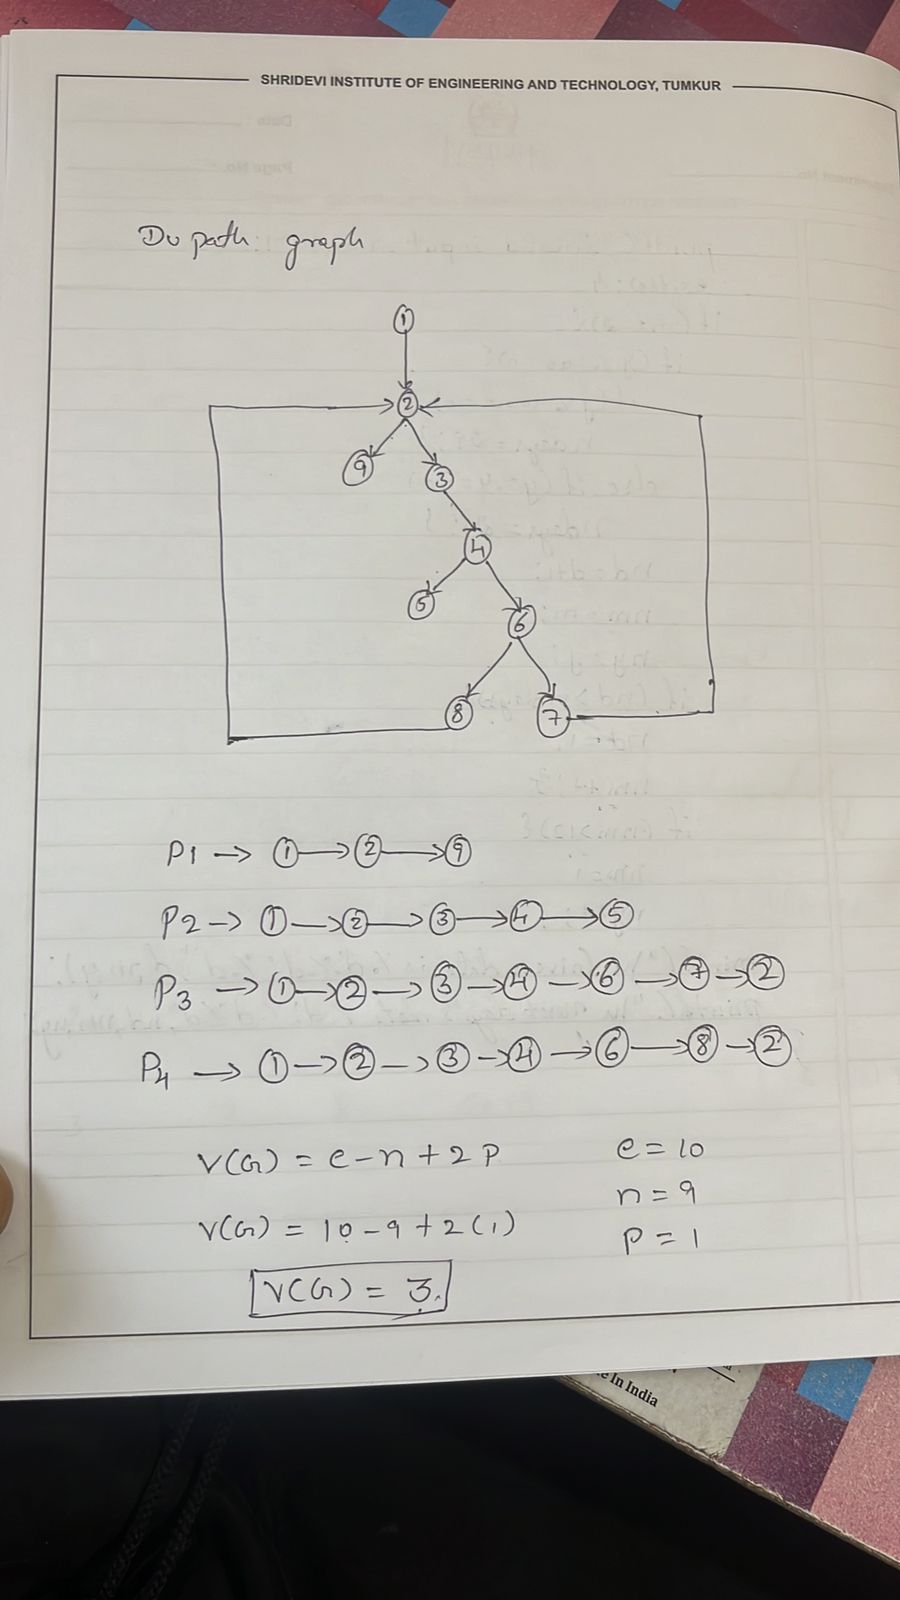 SHRIDEVI INSTITUTE OF ENGINEERING AND TECHNOLOGY, TUMKUR
Du path: graph
1
2
9
3
4
5
6
8
7
P1 → 1 → 2 → 9
P2 → 1 → 2 → 3 → 4 → 5
P3 → 1 → 2 → 3 → 4 → 6 → 7 → 2
P4 → 1 → 2 → 3 → 4 → 6 → 8 → 2
V(G) = e - n + 2 P
e = 10
n = 9
V(G) = 10 - 9 + 2 (1)
P = 1
V(G) = 3.
In India